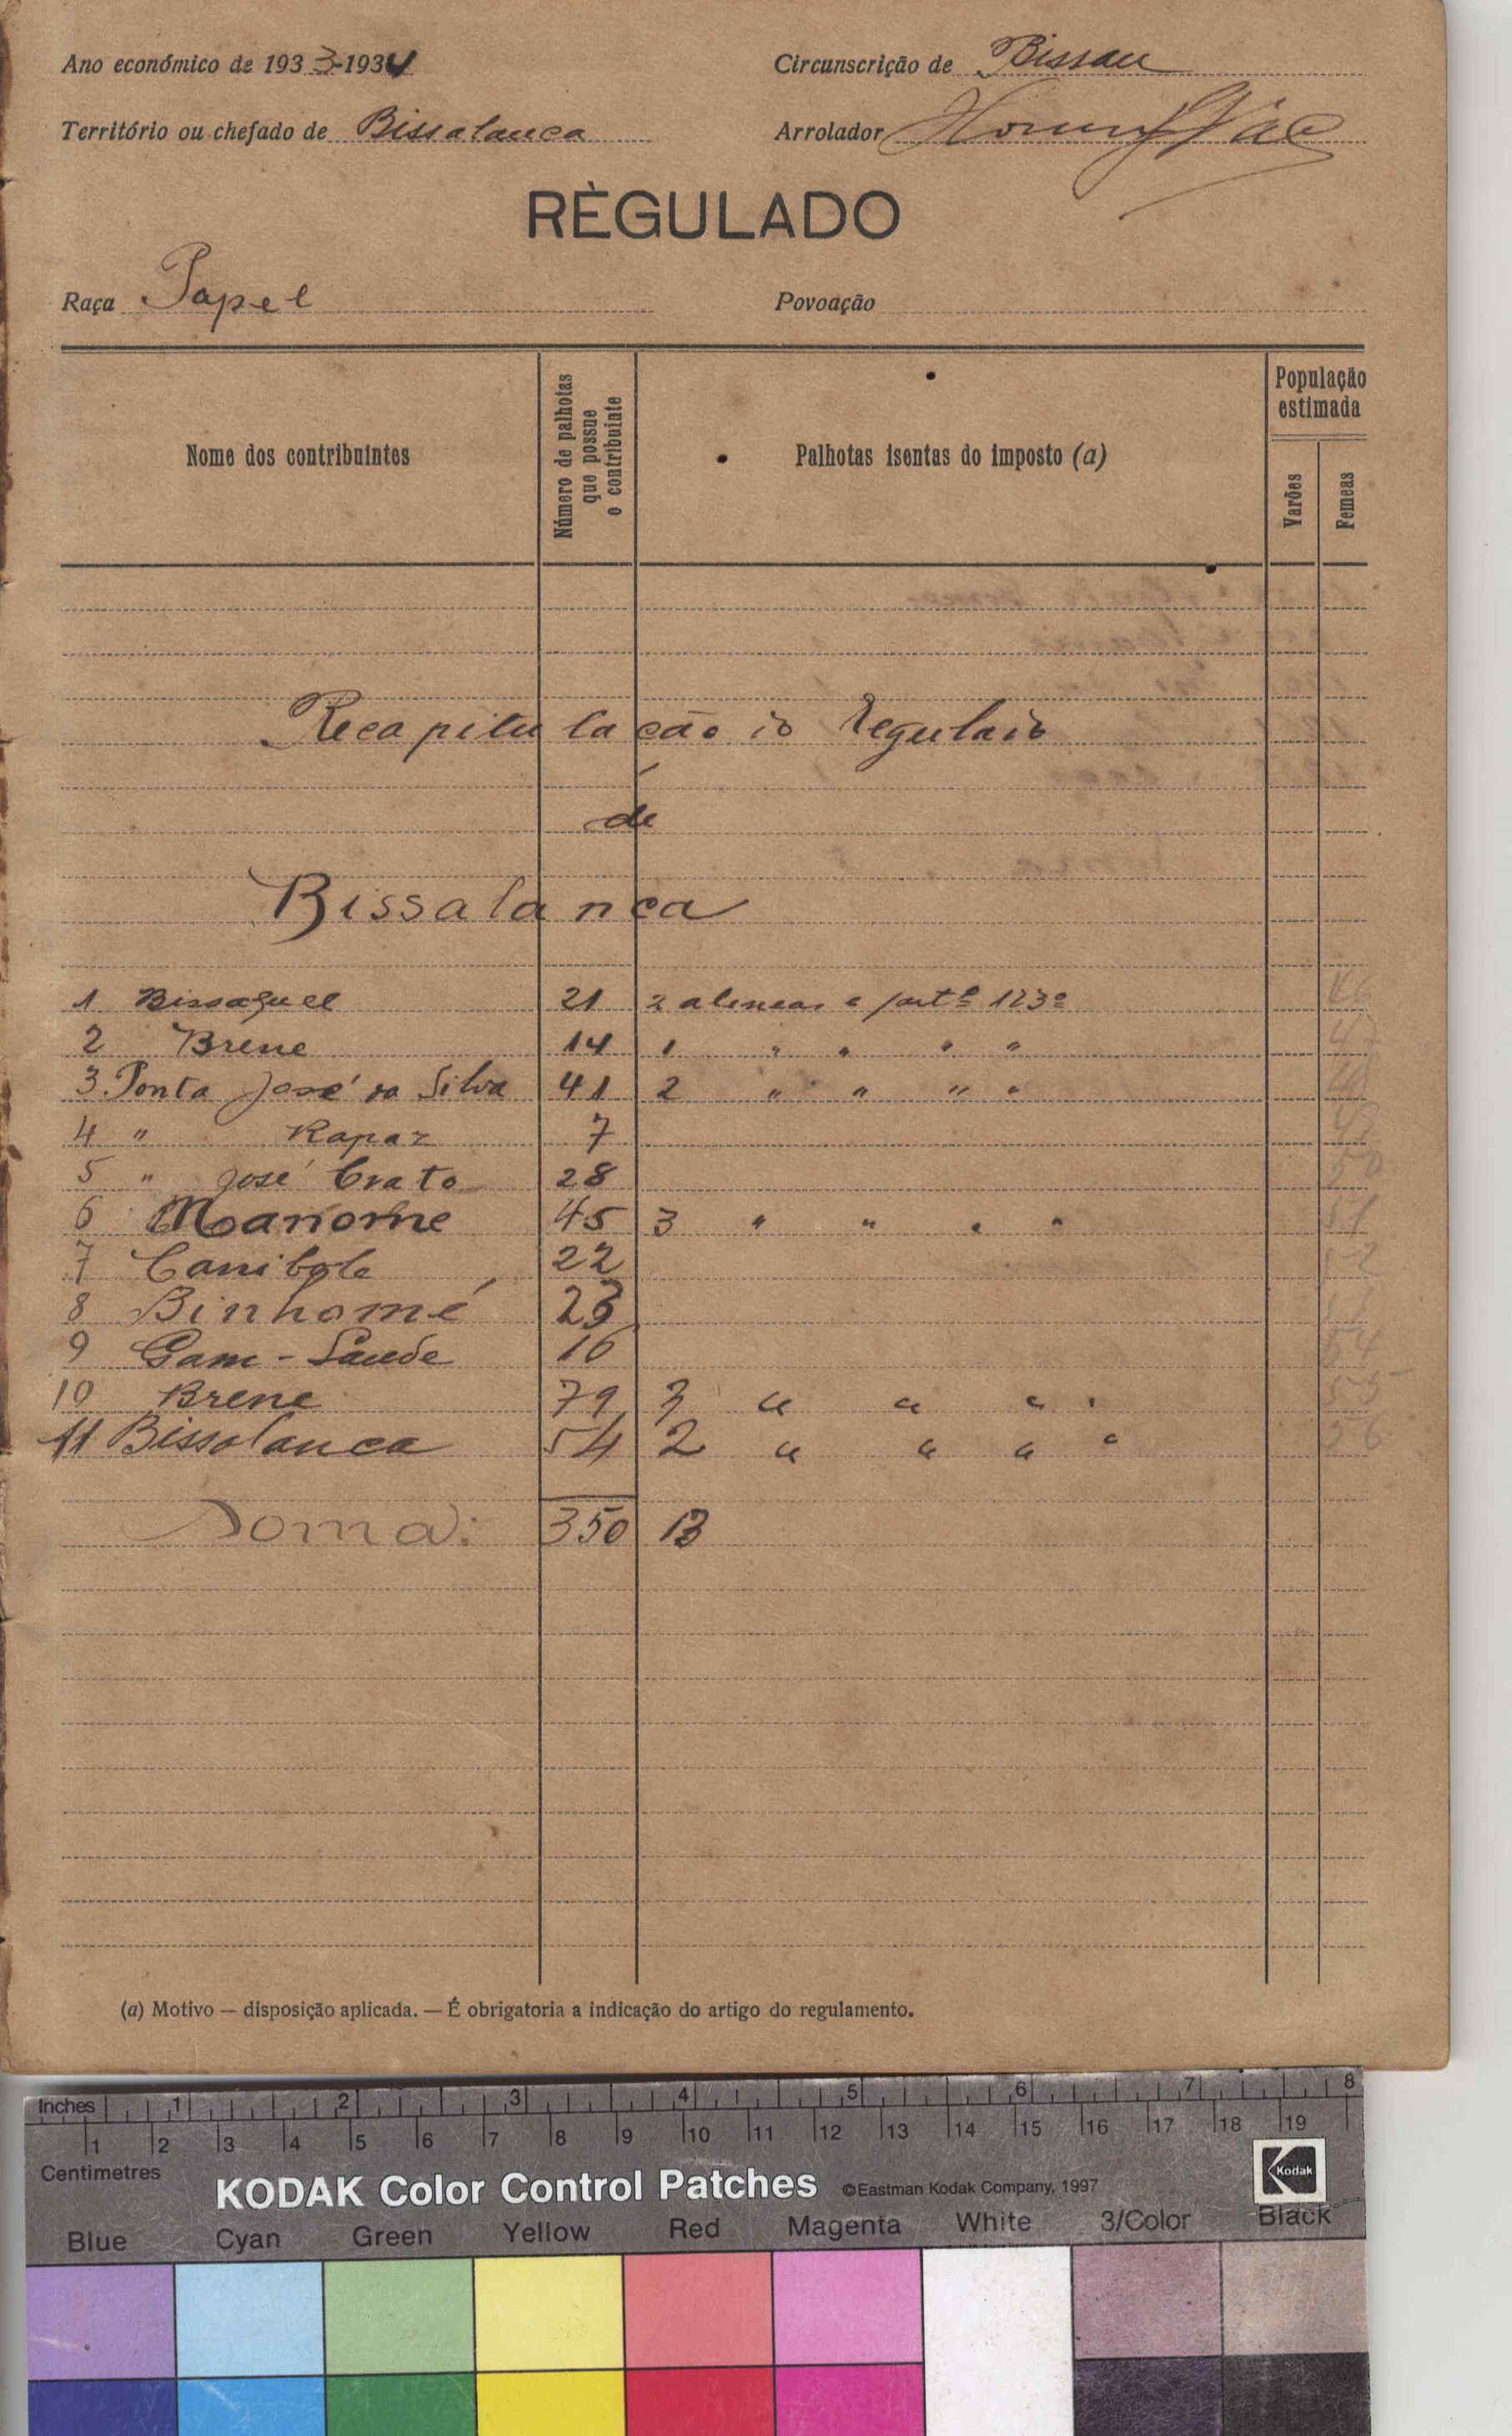 Ano económico de 1933-1934
Circunscrição de Bissau
Território ou chefado de Bissalanca
Arrolador
RÈGULADO
Raça Papel
Povoação
Nome dos contribuintes
Número de palhotas que possue o contribuinte
Palhotas isentas do imposto (a)
População estimada
Varões
Femeas
Recapitulação do Regulado
de
Bissalanca
1 Bissaguel 21 2 alineas e 123º
2 Brene 14 1 " " " "
3 Ponta José da Silva 41 2 " " " "
4 " Rapaz 7
5 " José Crato 28
6 Manome 45 3 " " " "
7 Canibole 22
8 Binhomé 23
9 Gam-Saude 16
10 Brene 79 3 " " " "
11 Bissalanca 54 2 " " " "
Soma: 350 13
(a) Motivo — disposição aplicada. — É obrigatoria a indicação do artigo do regulamento.
Inches 1 2 3 4 5 6 7 8
1 2 3 4 5 6 7 8 9 10 11 12 13 14 15 16 17 18 19
Centimetres
KODAK Color Control Patches ©Eastman Kodak Company, 1997 Kodak
Blue Cyan Green Yellow Red Magenta White 3/Color Black